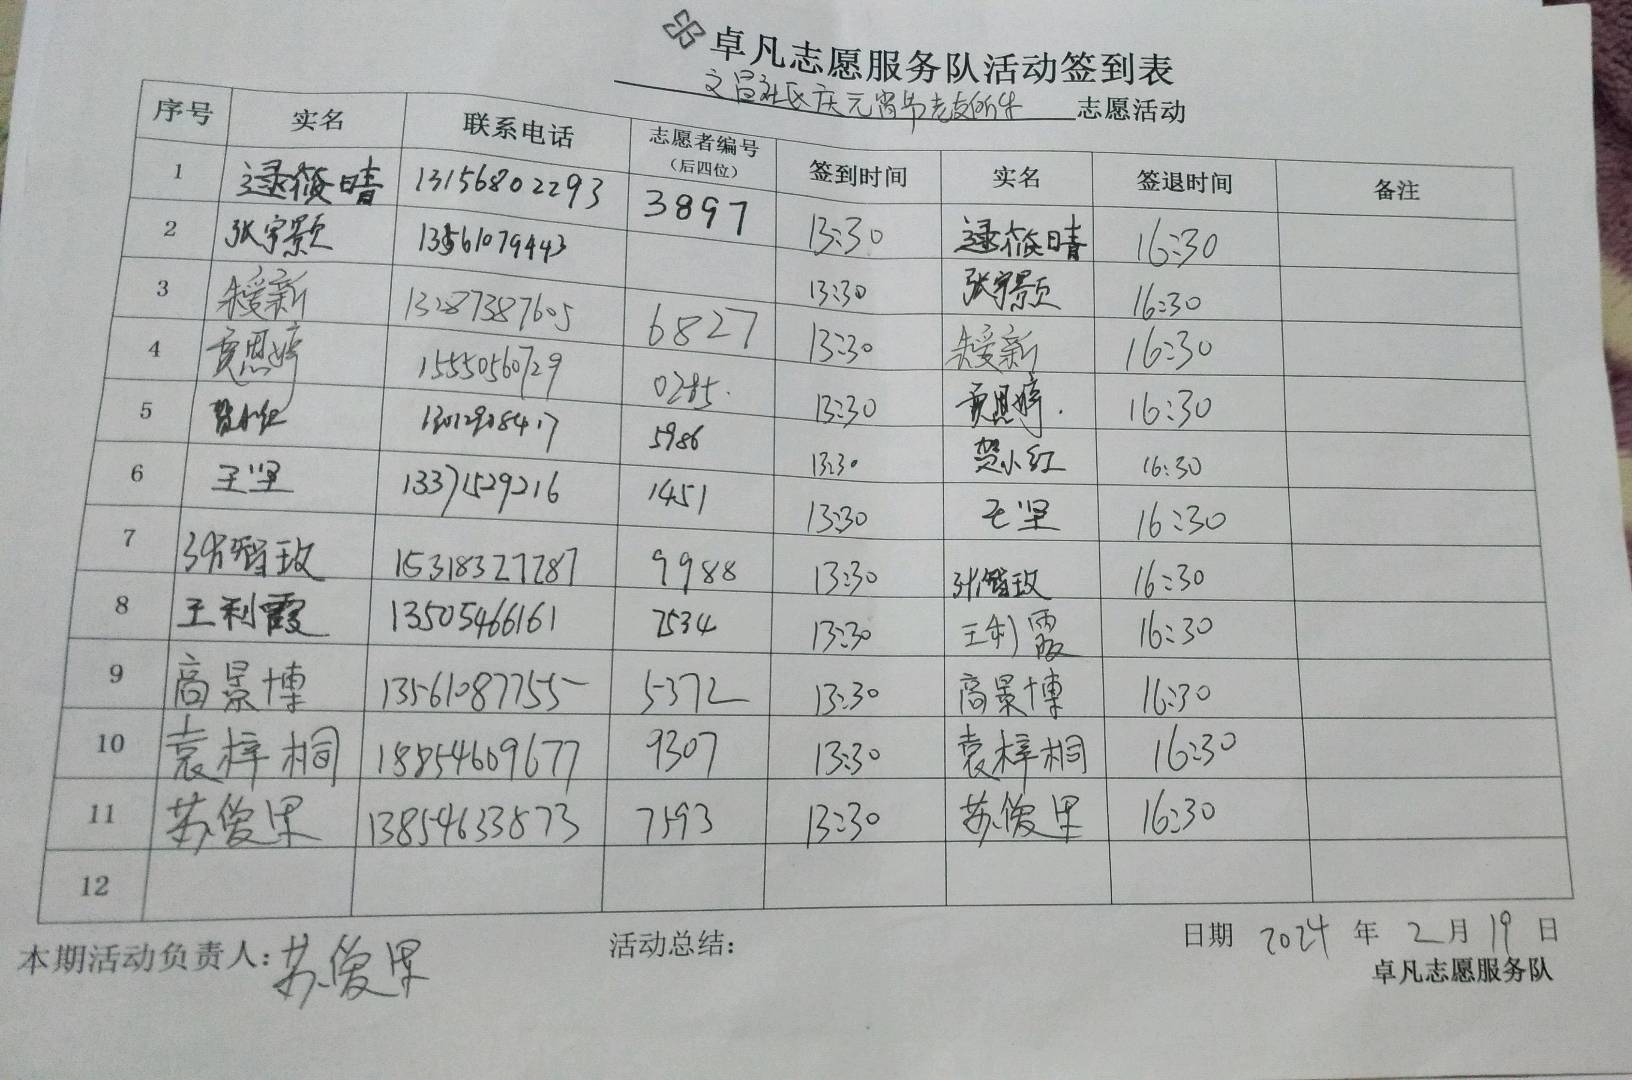 卓凡志愿服务队活动签到表
文昌社区庆元宵节 志愿活动
序号 实名 联系电话 志愿者编号（后四位） 签到时间 实名 签退时间 备注
1 逯筱晴 13156802293 3897 13:30 逯筱晴 16:30
2 张宇颢 13561079443 13:30 张宇颢 16:30
3 新 13287387605 6827 13:30 新 16:30
4 思婷 15550560729 0285. 13:30 思婷. 16:30
5 贺小红 13012908417 5986 13:30 贺小红 16:30
6 王坚 13371529216 1451 13:30 王坚 16:30
7 张智玫 15318327287 9988 13:30 张智玫 16:30
8 王利霞 13505466161 2534 13:30 王利霞 16:30
9 高景博 13561087755 5372 13:30 高景博 16:30
10 袁梓桐 18854609677 9307 13:30 袁梓桐 16:30
11 苏俊果 13854633873 7593 13:30 苏俊果 16:30
12
本期活动负责人: 苏俊果 活动总结: 日期 2024 年 2 月 19 日
卓凡志愿服务队